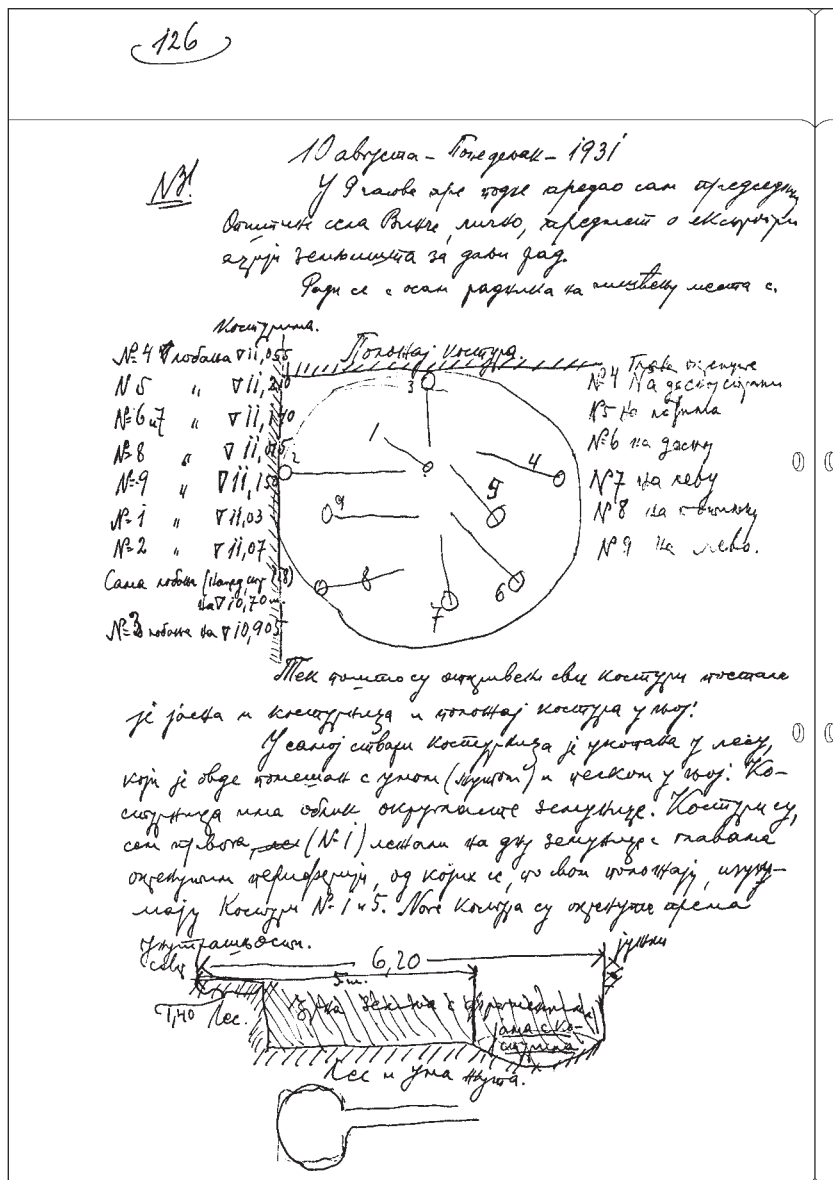 126
10 августа – Понедељак – 1931
№!
У 9 часова пре подне предао сам председнику
Општине села Винче, лично, предмет о експропри
ацији земљишта за даљи рад.
Ради се с осам радника на
места с.
Костурима.
Положај костура.
№ 4 лобања ▽ 11,055
N 5 „ ▽ 11,210
№ 6 и 7 „ ▽ 11,140
№ 8 „ ▽ 11,015
№ 9 „ ▽ 11,15
№ 1 „ ▽ 11,03
№ 2 „ ▽ 11,07
Сама лобања
на ▽ 10,70 m.
№ 3 лобања на ▽ 10,905
3
1
2
4
9
5
8
7
6
Глава окренуте
№ 4 На десну страну
№ 5 На
№ 6 на десну
№ 7 на леву
№ 8 на
№ 9 на лево.
Тек пошто су откривени сви костури постала
је јасна и костурница и положај костура у њој!
У самој ствари костурница је укопана у лесу,
који је овде помешан с умом (жутом) и песком у њој! Ко-
стурница има облик округласте земунице. Костури су,
сем првога, (№ 1) лежали на дну земунице с главама
окренутим периферији, од којих се, по свом положају, изузи-
мају Костури № 1 и 5. Ноге костура су окренуте према
унутрашњости.
север
6,20
јужни
5 m.
1,40
Лес.
јама с ко-
стурима
Лес и ума жута.